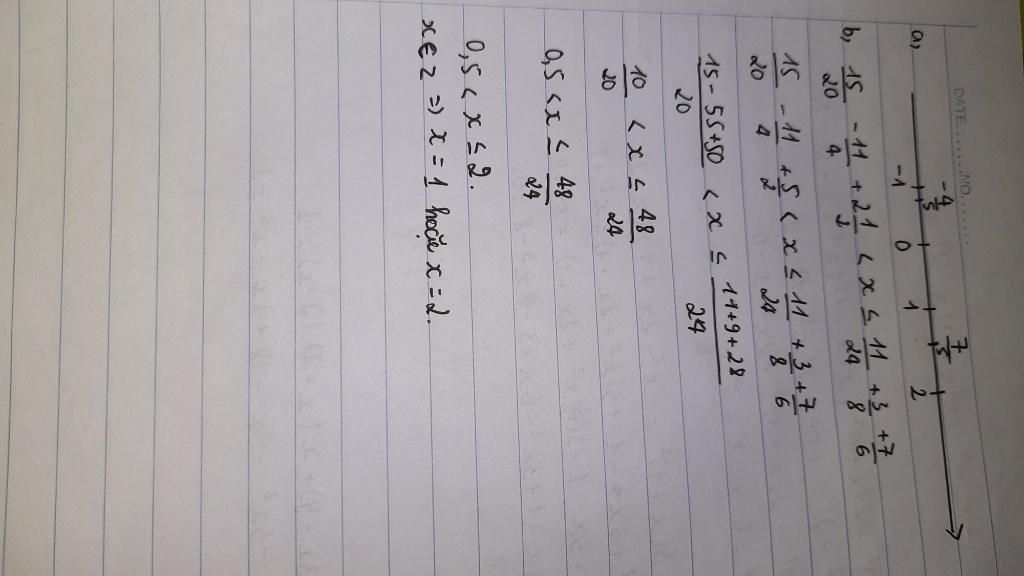 DATE.........NO.......
a, -4/5 7/5
-1 0 1 2
b, 15/20 - 11/4 + 2 1/2 < x ≤ 11/24 + 3/8 + 7/6
15/20 - 11/4 + 5/2 < x ≤ 11/24 + 3/8 + 7/6
15 - 55 + 50/20 < x ≤ 11 + 9 + 28/24
10/20 < x ≤ 48/24
0,5 < x ≤ 48/24
0,5 < x ≤ 2.
x ∈ Z => x = 1 hoặc x = 2.